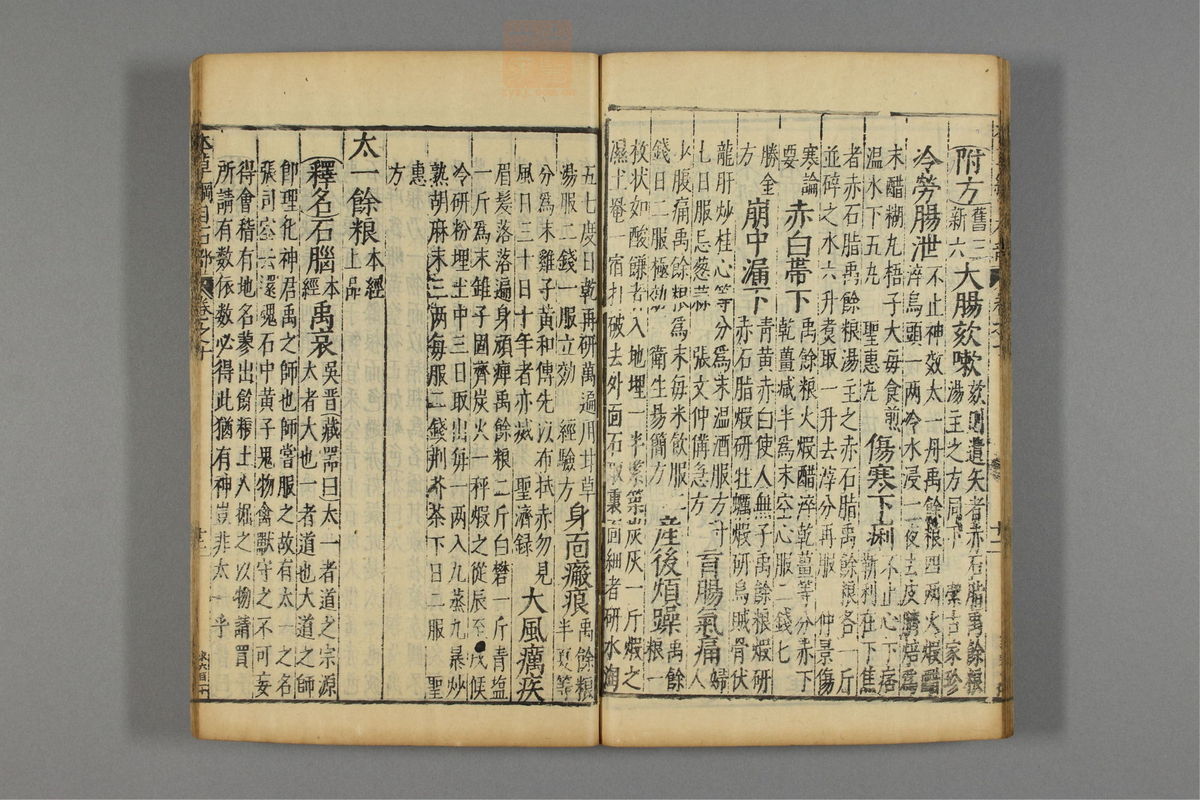 附方舊三新六大腸欬嗽欬則遺矢者赤石脂禹餘糧湯主之方同下潔古家珍
冷勞腸泄不止神效太一丹禹餘糧四兩火煅醋淬烏頭一兩冷水浸一夜去皮臍焙爲
末醋糊丸梧子大每食前温水下五丸聖惠方傷寒下痢不止心下痞新利在下焦
者赤石脂禹餘糧湯主之赤石脂禹餘糧各一斤並碎之水六升煮取一升去滓分再服仲景傷
寒論赤白帶下禹餘糧火煅醋淬乾薑等分赤下乾薑減半爲末空心服二錢七
勝金方崩中漏下青黄赤白使人無子禹餘糧煅研赤石脂煅研牡蠣煅研烏賊骨伏
龍肝炒桂心等分爲末温酒服方寸匕日服忌葱蒜張文仲備急方盲腸氣痛婦人
少腹痛禹餘糧爲末每米飲服二錢日二服極効衛生易簡方産後煩躁禹餘糧一
枚状如酸䭔者入地埋一半緊築炭灰一斤煅之濕土罨一宿打破去外面石取裏面細者研水淘
五七度日乾再研萬遍用甘草湯服二錢一服立効經驗方身面瘢痕禹餘糧半夏等
分爲末雞子黄和傅先以布拭赤勿見風日三十日十年者亦滅聖濟録大風癘疾
眉髮落落遍身頑痺禹餘糧二斤白礬一斤青塩一斤爲末鑵子固濟炭火一秤煅之從辰至戌候
冷研粉埋土中三日取出每一兩入九蒸九暴炒熟胡麻末三兩每服二錢荆芥茶下日二服聖
惠方
太一餘粮本經上品
釋名石腦本經禹哀吳晋藏器曰太一者道之宗源太者大也一者道也大道之師
卽理化神君禹之師也師嘗服之故有太一之名張司空云還魂石中黄子鬼物禽獣守之不可妄
得會稽有地名蓼出餘粮土人掘之以物請買所請有数依数必得此猶有神豈非太一乎
本草綱目石部卷之十
廿二